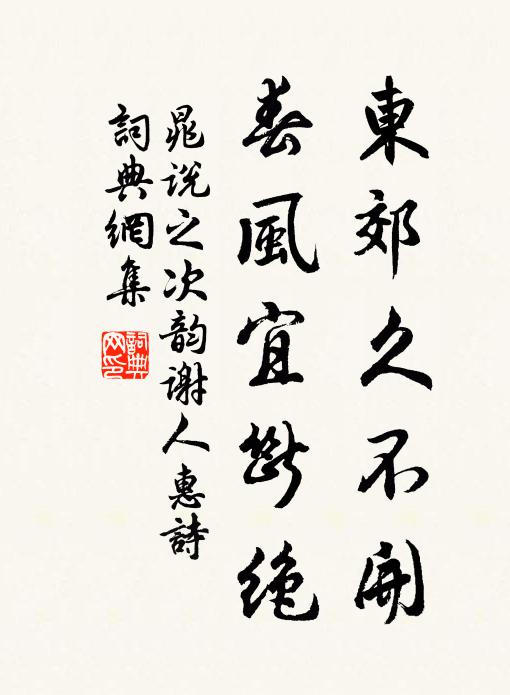 東郊久不開
春風宜斷絶
晁说之次韵谢人惠詩
詞典網集
詞典网印